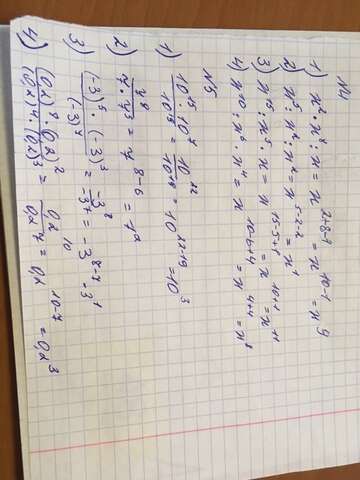 №4
1) x² · x⁸ : x = x²⁺⁸⁻¹ = x¹⁰⁻¹ = x⁹
2) x⁵ : x² : x² = x⁵⁻²⁻² = x¹
3) x¹⁵ : x⁵ · x = x¹⁵⁻⁵⁺¹ = x¹⁰⁺¹ = x¹¹
4) x¹⁰ : x⁶ · x⁴ = x¹⁰⁻⁶⁺⁴ = x⁴⁺⁴ = x⁸
№5
1) 10¹⁵ · 10⁷ / 10¹⁹ = 10²² / 10¹⁹ = 10²²⁻¹⁹ = 10³
2) = 7⁸⁻⁶ = 7²
3) (-3)⁵ · (-3)³ / (-3)⁷ = -3⁸ / -3⁷ = -3⁸⁻⁷ -3¹
4) (0,2)⁸ · (0,2)² / (0,2)⁴ · (0,2)³ = 0,2¹⁰ / 0,2⁷ = 0,2¹⁰⁻⁷ = 0,2³